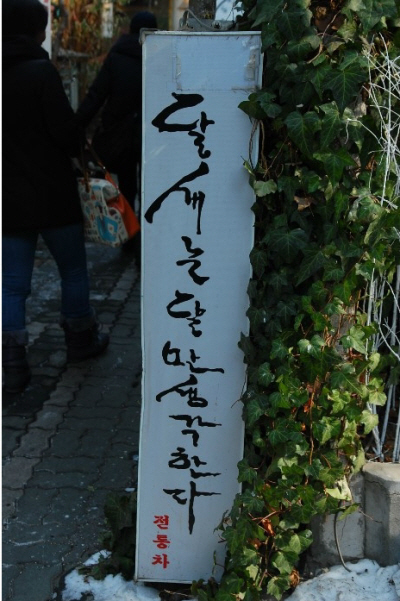 달새는달만생각한다
전통차